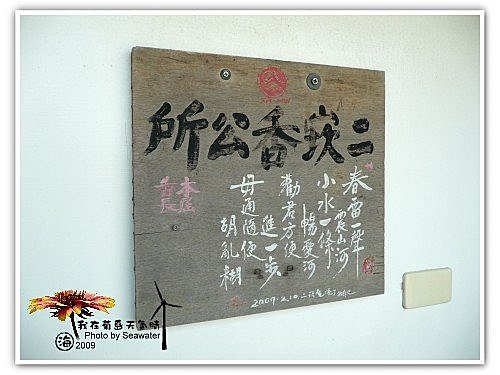 二崁香公所
春雷一聲
震山河
小水一條
暢愛河
勸君方便
進一步
毋通隨便
胡亂糊
2009.2.10.二崁
我在菊島天氣晴
Photo by Seawater
海 2009